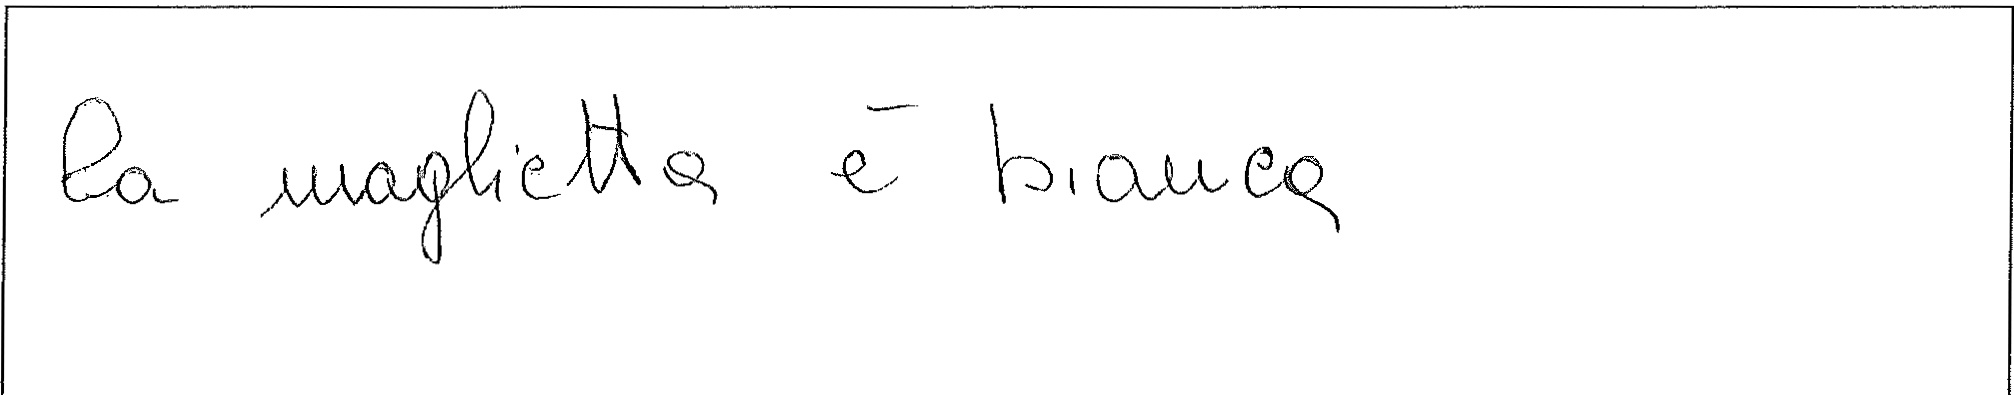 la maglietta è bianca